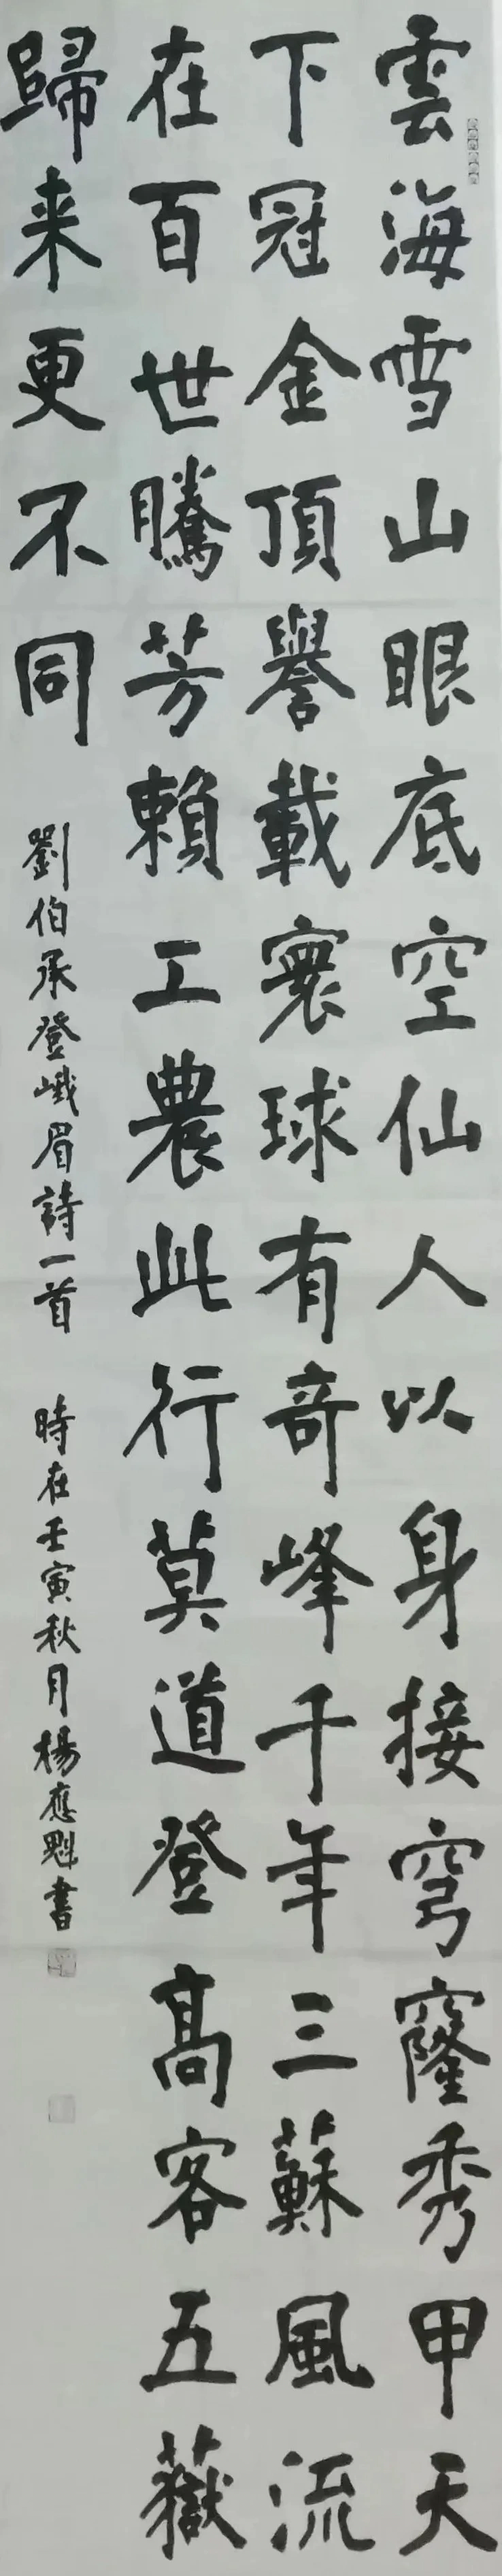 雲海雪山眼底空仙人以身接穹窿秀甲天
下冠金頂譽載寰球有奇峰千年三蘇風流
在百世騰芳賴工農此行莫道登高客五嶽
歸来更不同
劉伯承登峨眉詩一首 時在壬寅秋月楊應魁書